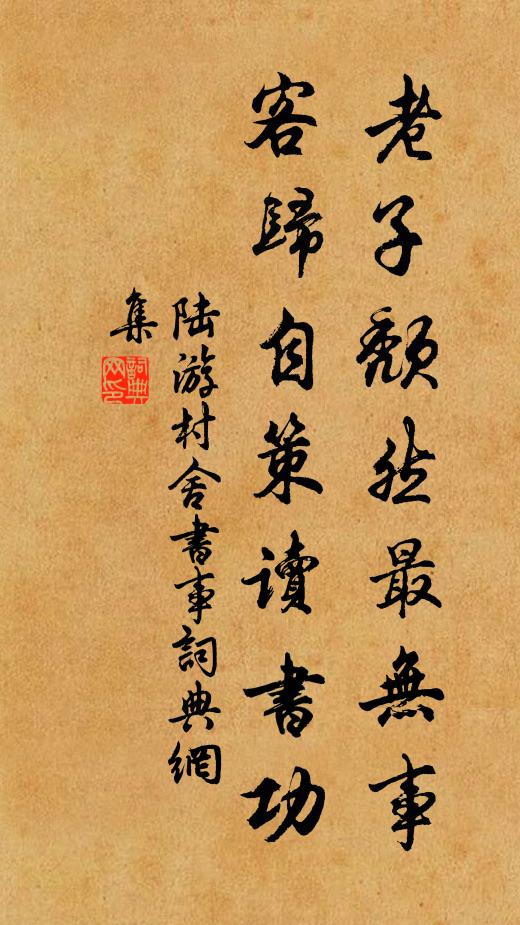 老子頽然最無事
客歸自策讀書功
陆游村舍書事詞典網
集
詞典网印